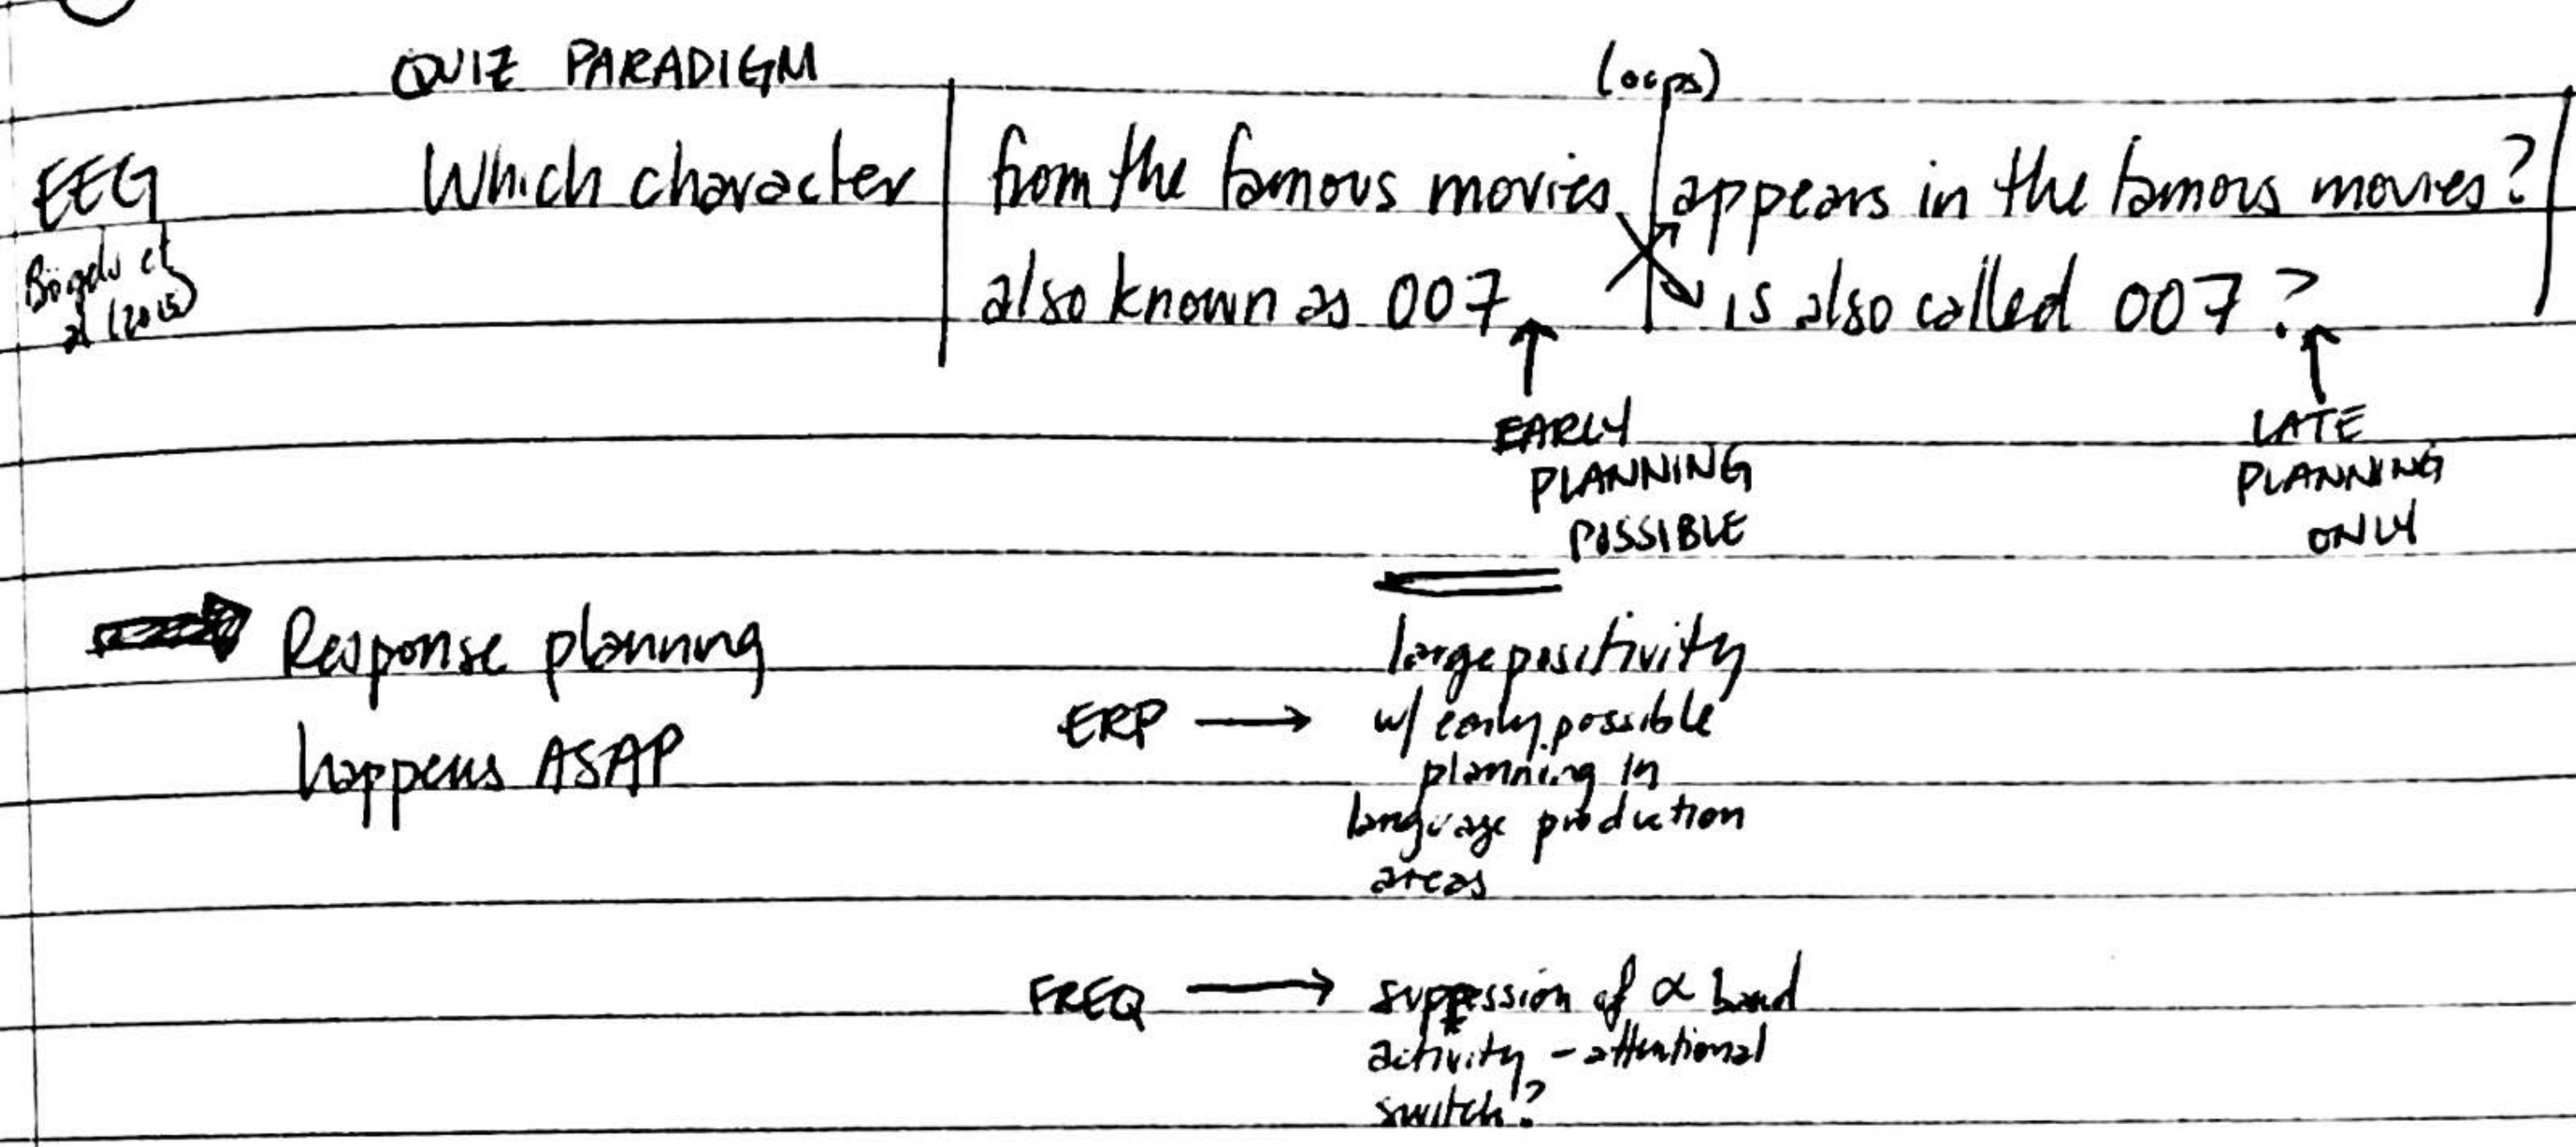 QUIZ PARADIGM
(oops)
EEG
Bögels et
al (2015)
Which character
from the famous movies
also known as 007
appears in the famous movies?
is also called 007?
EARLY
PLANNING
POSSIBLE
LATE
PLANNING
ONLY
Response planning
happens ASAP
ERP →
large positivity
w/ early possible
planning in
language production
areas
FREQ →
suppression of α band
activity - attentional
switch?